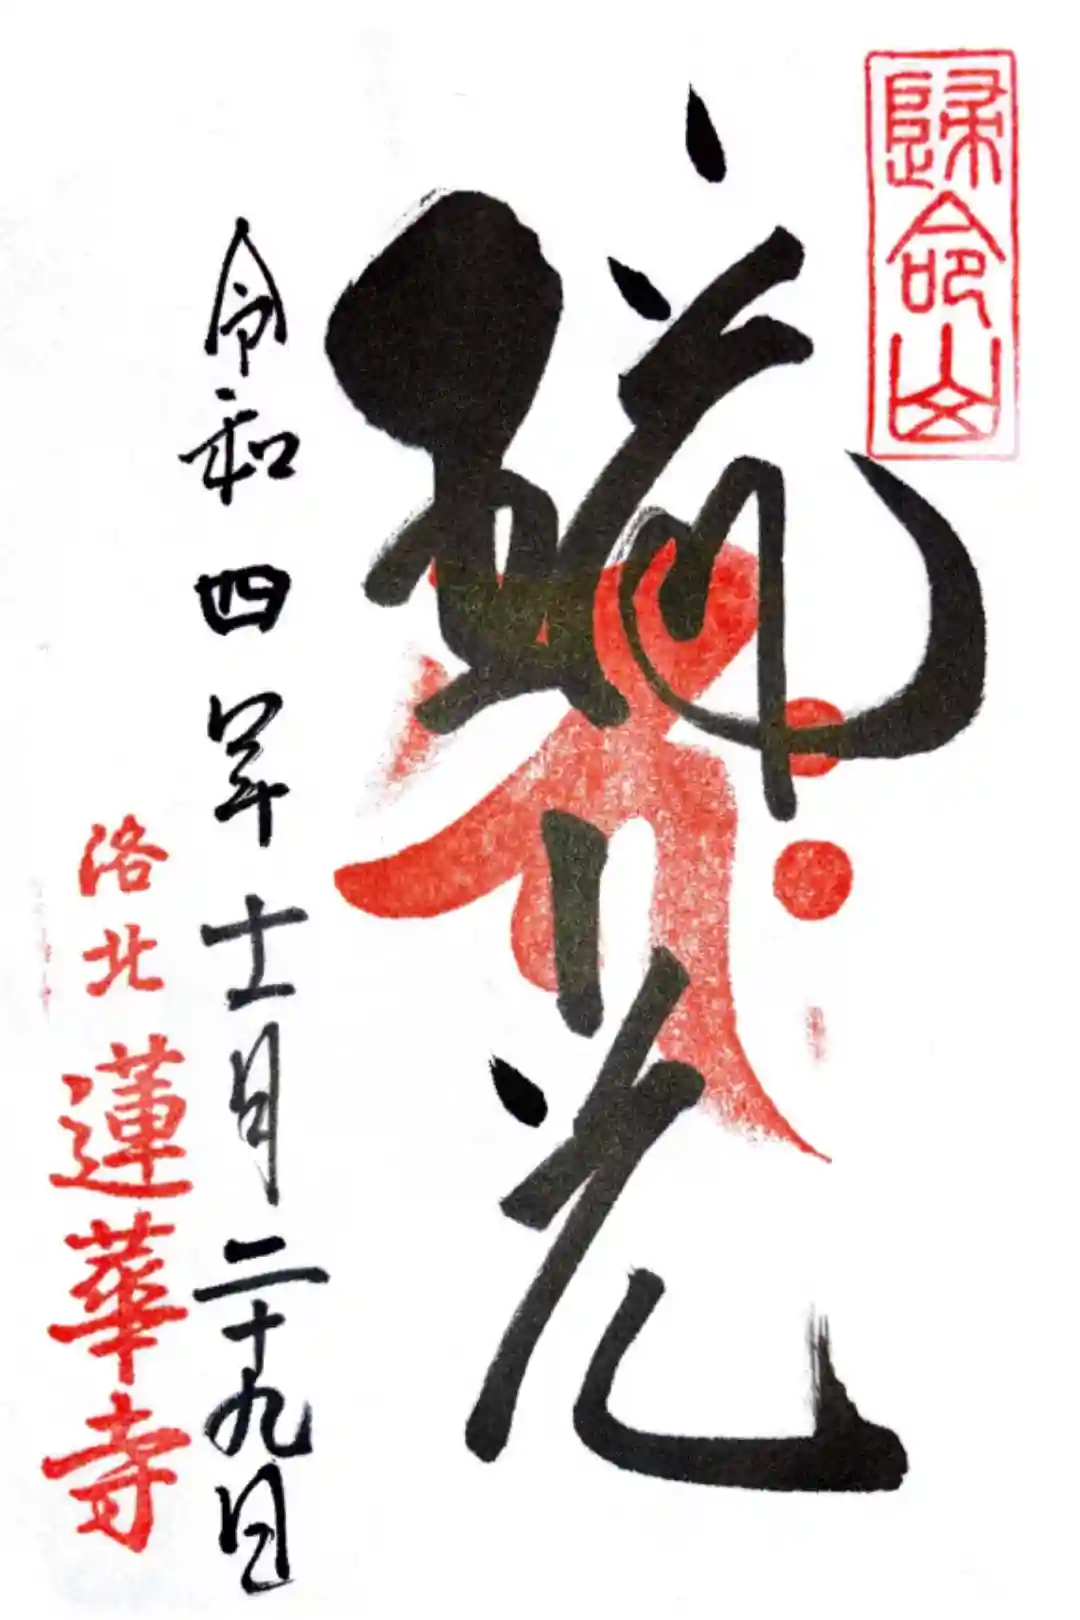 歸命山
光
令和四年十一月二十九日
洛北 蓮華寺